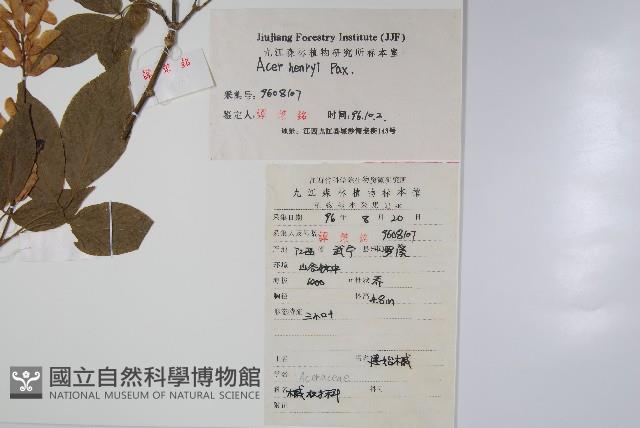 Jiujiang Forestry Institute (JJF)
九江森林植物研究所标本室
Acer henryi Pax.
采集号: 9608107
鉴定人: 谭策铭 时间: 96.10.2.
地址: 江西九江县城沙河老街143号
谭策铭
九江森林植物标本馆
采集日期 96年 8月 20日
谭策铭 9608107
江西 武宁
环境 山谷林中
海拔 1000 乔
4.8m
三小叶
建始槭
Aceraceae
槭树科
附记
國立自然科學博物館
NATIONAL MUSEUM OF NATURAL SCIENCE